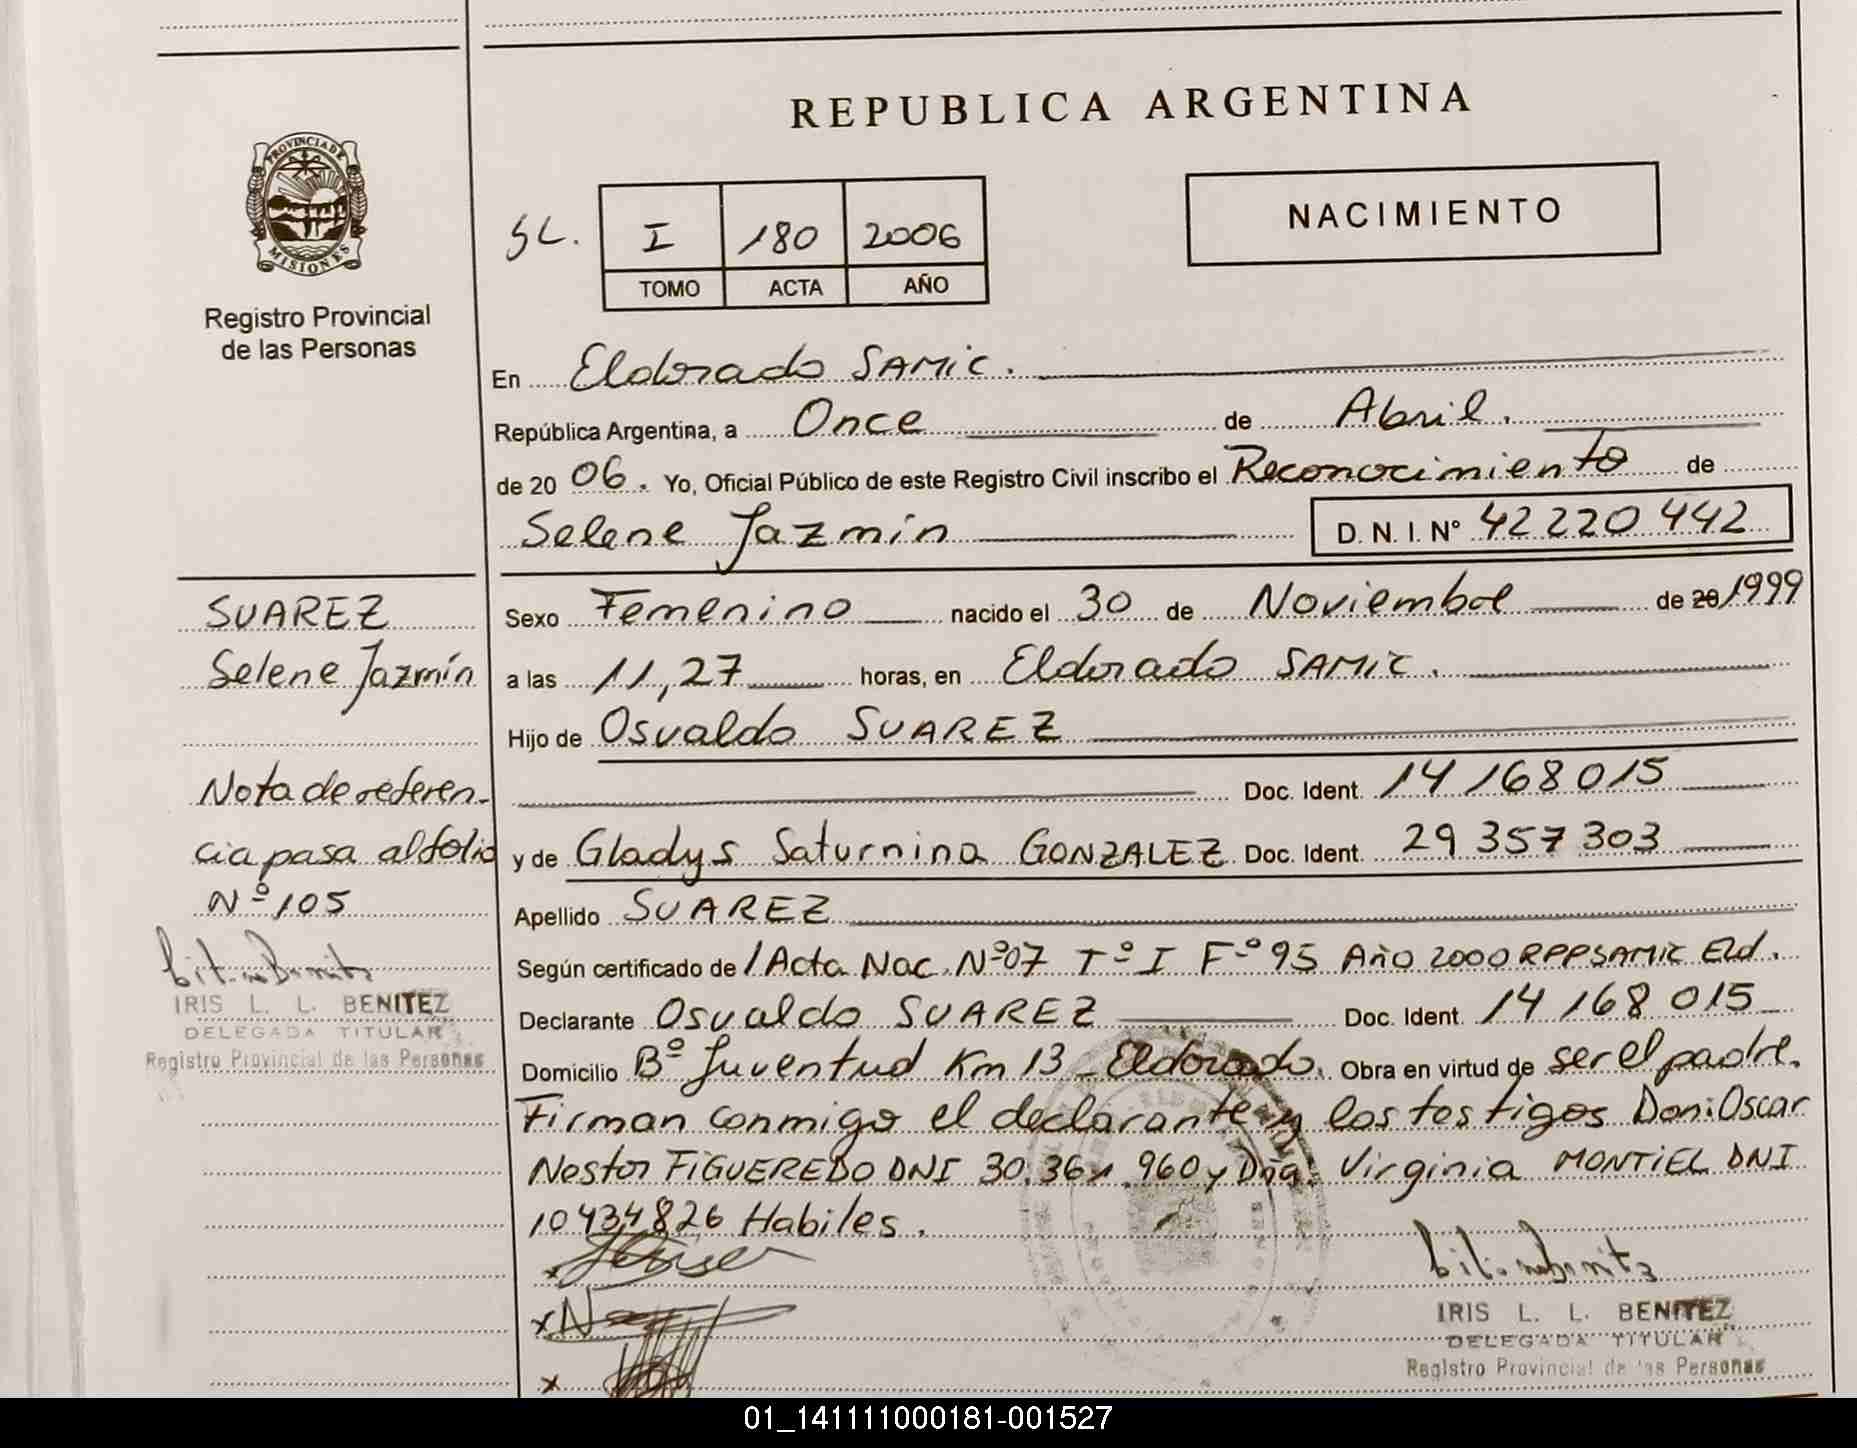 REPUBLICA ARGENTINA
PROVINCIA DE
MISIONES
Registro Provincial
de las Personas
SL. I 180 2006
TOMO ACTA AÑO
NACIMIENTO
En Eldorado SAMIC.
República Argentina, a Once de Abril.
de 20 06. Yo, Oficial Público de este Registro Civil inscribo el Reconocimiento de
Selene Jazmín D. N. I. N° 42 220 442
SUAREZ
Selene Jazmín
Nota de referen-
cia pasa al folio
Nº 105
IRIS L. L. BENITEZ
DELEGADA TITULAR
Registro Provincial de las Personas
Sexo Femenino nacido el 30 de Noviembre de 20 1999
a las 11,27 horas, en Eldorado SAMIC.
Hijo de Osvaldo SUAREZ
Doc. Ident. 14 168 015
y de Gladys Saturnina GONZALEZ Doc. Ident. 29 357 303
Apellido SUAREZ
Según certificado de / Acta Nac. Nº 07 Tº I Fº 95 Año 2000 RPPSAMIC Eld.
Declarante Osvaldo SUAREZ Doc. Ident. 14 168 015
Domicilio Bº Juventud Km 13 - Eldorado. Obra en virtud de ser el padre.
Firman conmigo el declarante y los testigos Don: Oscar
Nestor FIGUEREDO DNI 30.361.960 y Dña. Virginia MONTIEL DNI
10434826 Habiles.
x
x
x
IRIS L. L. BENITEZ
DELEGADA TITULAR
Registro Provincial de las Personas
01_141111000181-001527